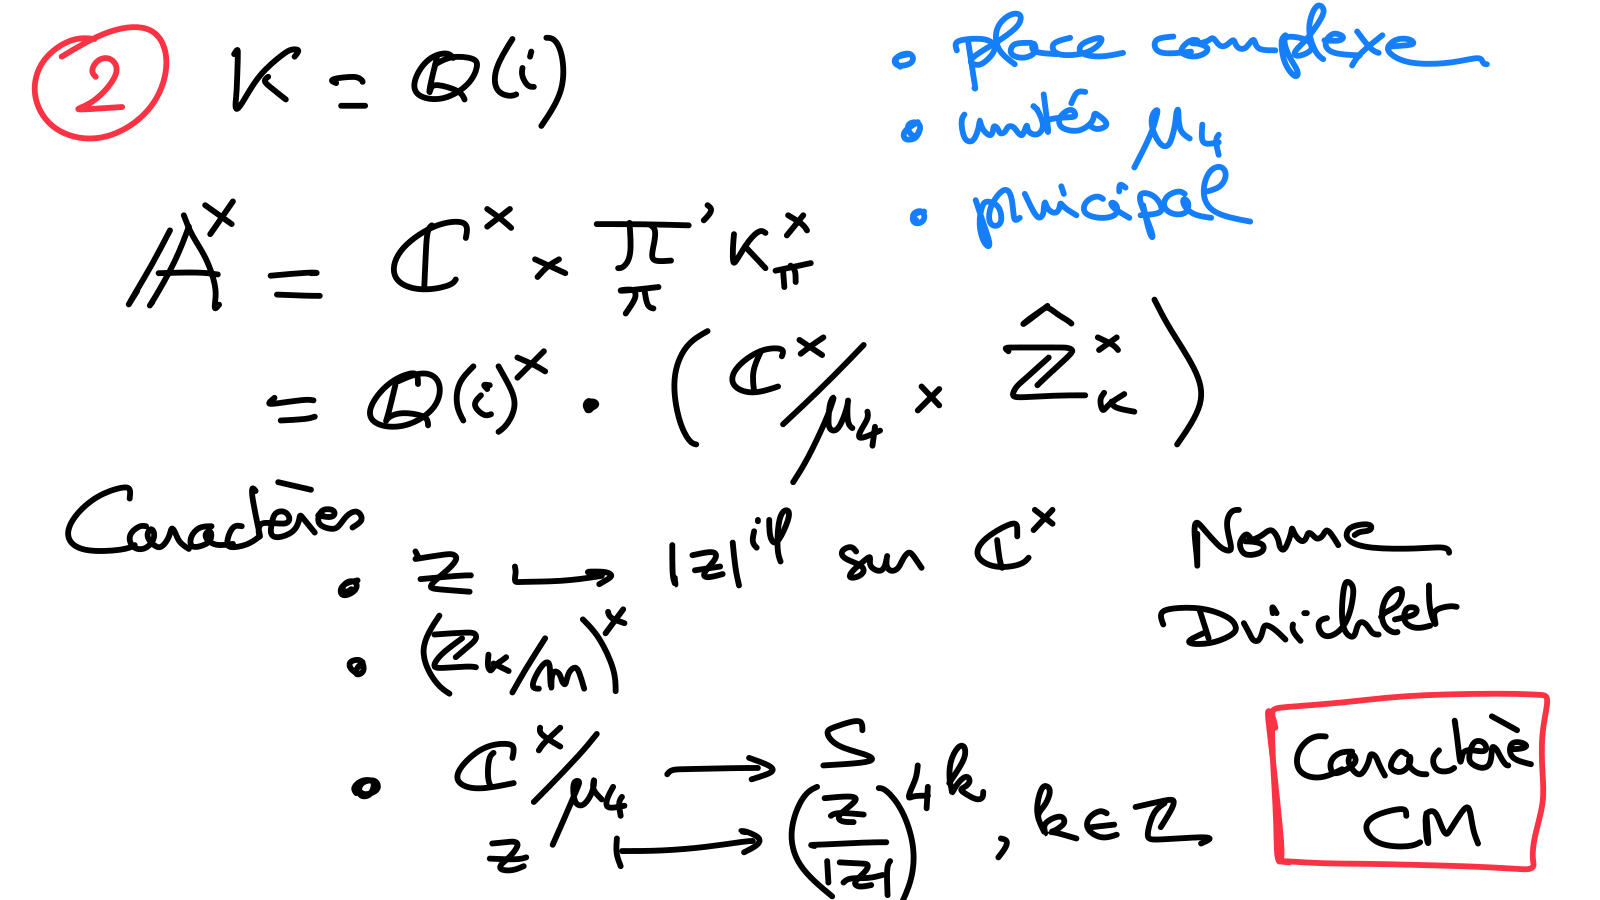 ② K = Q(i)
• place complexe
• unités μ₄
• principal
𝔸^× = ℂ^× × ∏'_π K_π^×
= Q(i)^× · (ℂ^×/μ₄ × \hat{ℤ}_K^×)
Caractères
• z ↦ |z|^{iφ} sur ℂ^× Norme
• (ℤ_K/m)^× Dirichlet
• ℂ^×/μ₄ → S
z ↦ (z/|z|)^{4k}, k ∈ ℤ
Caractère
CM